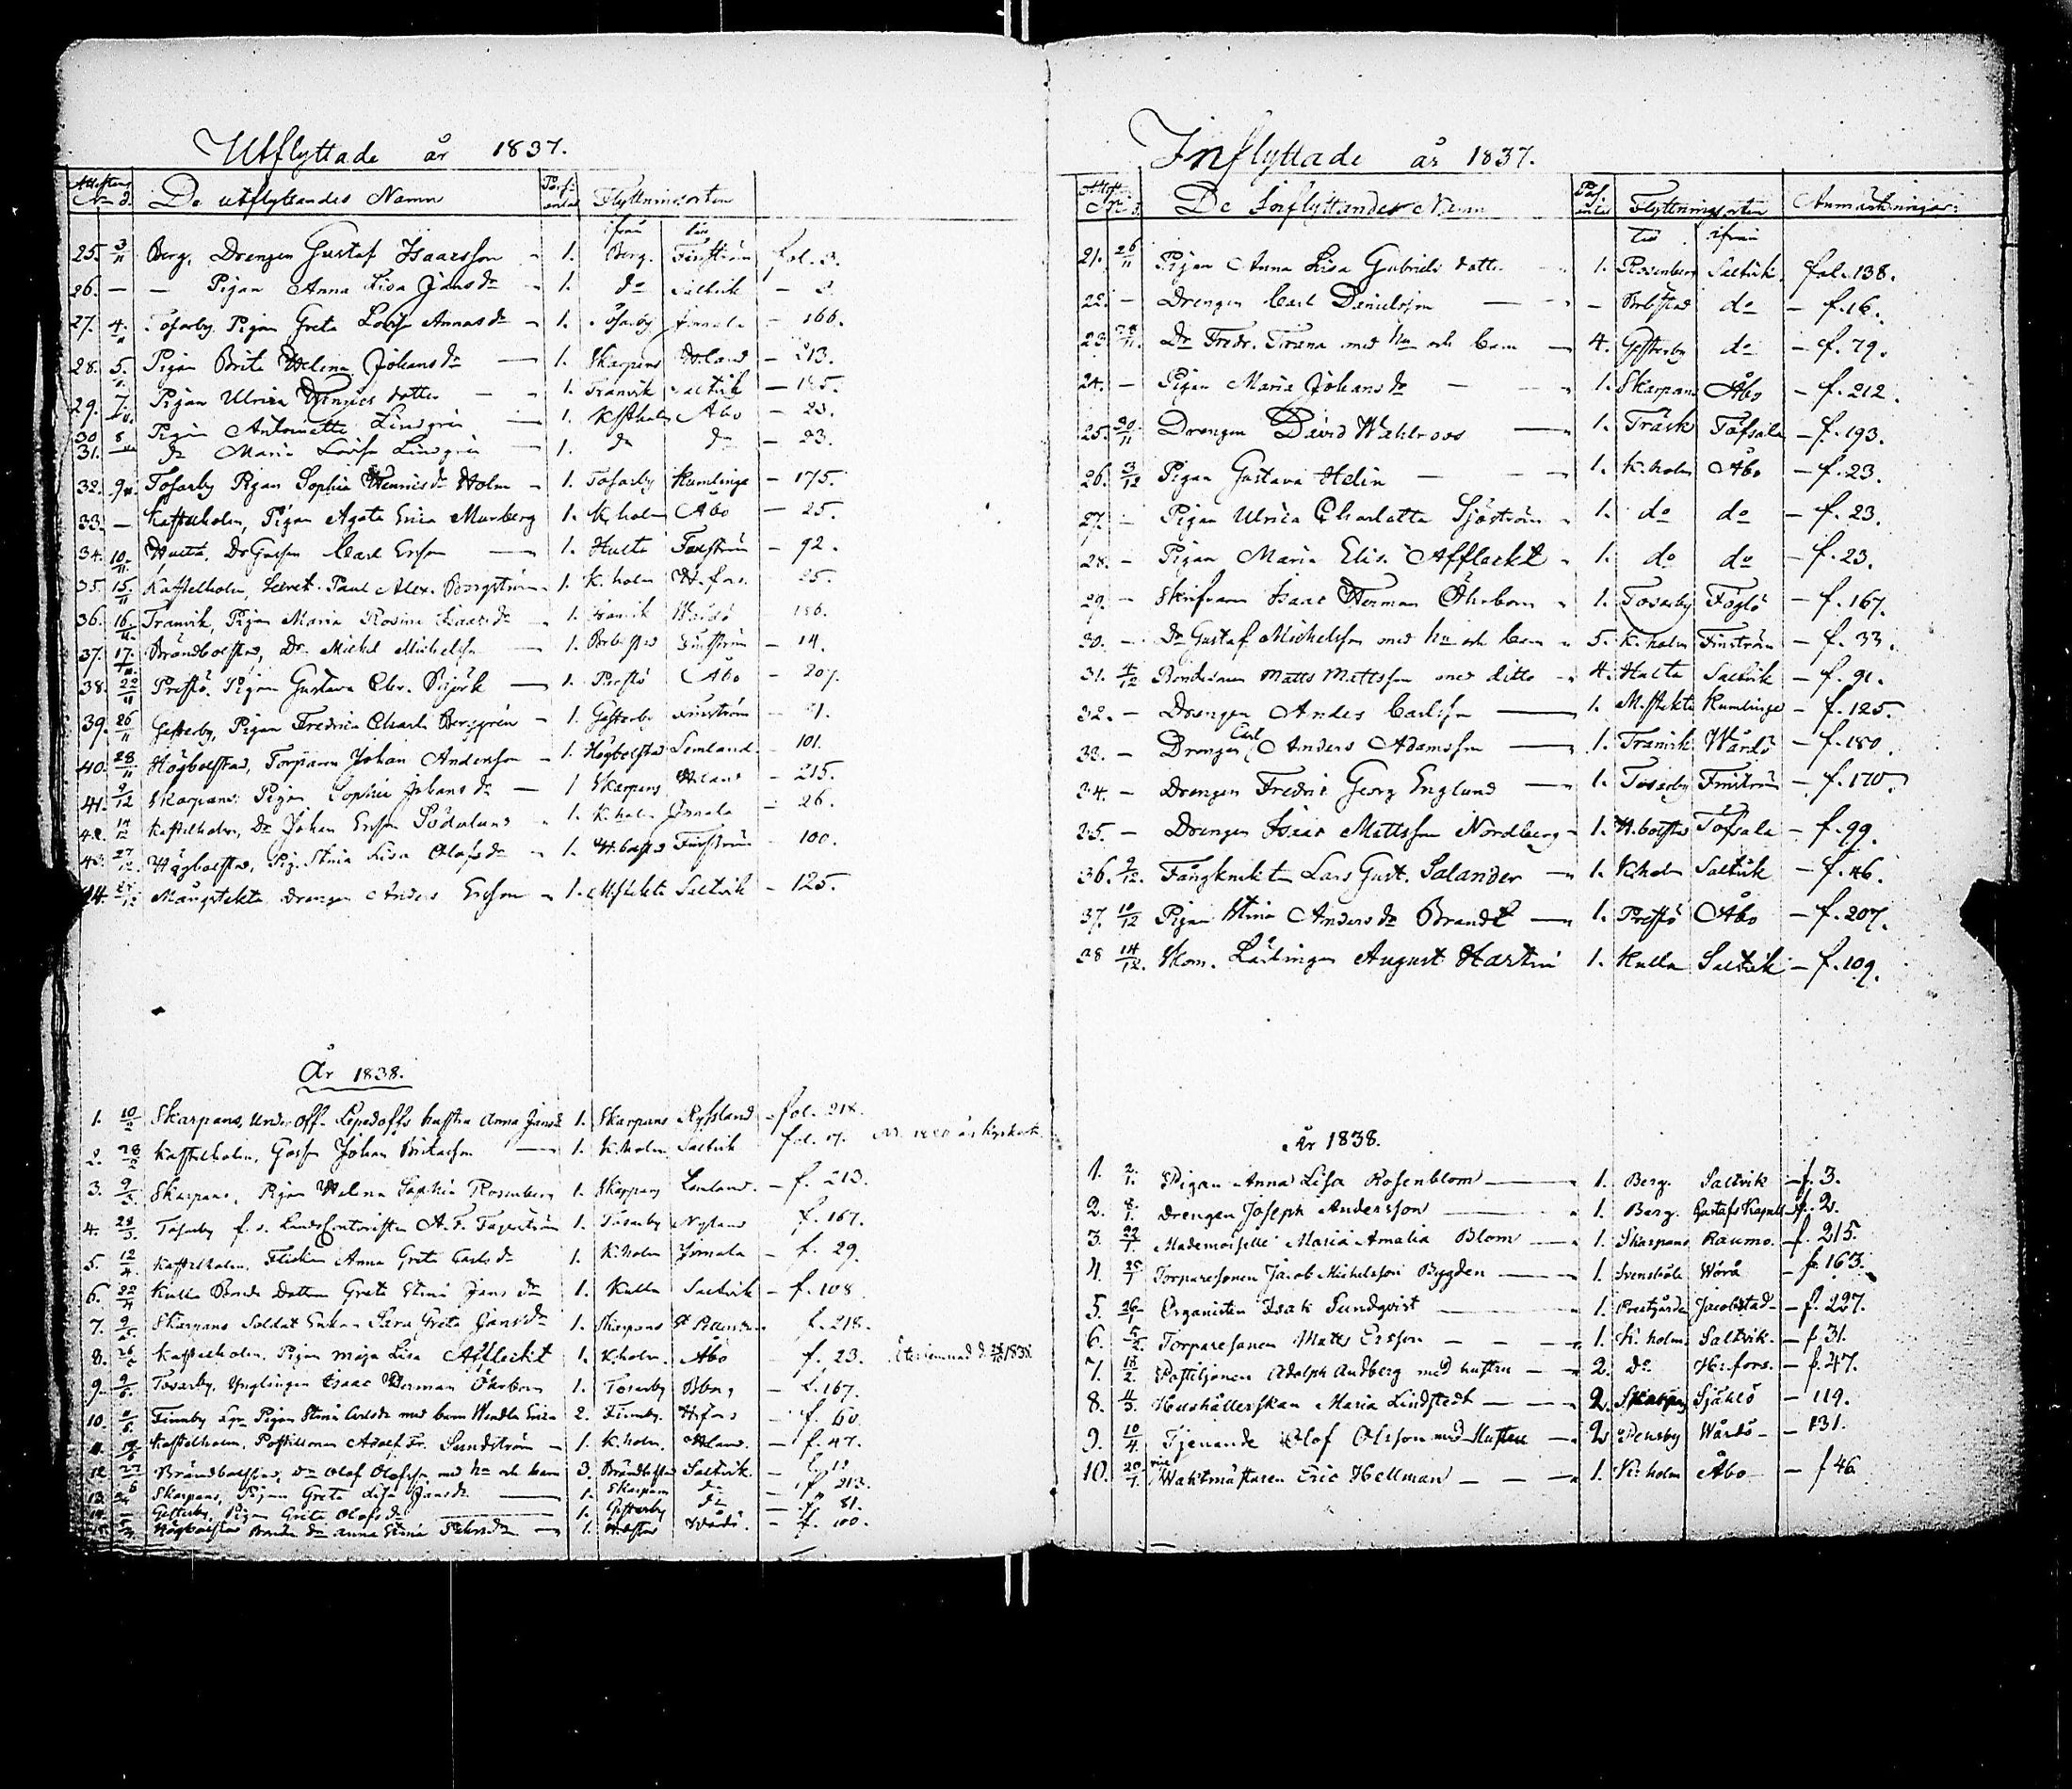 Utflyttade år 1837.
Attestens No d. De utflyttandes Namn Flyttningsorten
ifrån till
25. 3/11 Berg, Drengen Gustaf Isaacsson 1. Berg. Finström fol. 3.
26. — — Pigan Anna Lisa Jansdr 1. do Saltvik — 3.
27. 4/11 Tosarby Pigan Greta Lovisa Annasdr 1. Tosarby Jomala — 166.
28. 5/11 Pigan Brita Helena Johansdr — 1. Skarpans — 213.
29. 7/11 Pigan Ulrica Henrics dotter — 1. Tranvik Saltvik — 185.
30 8 Pigan Antoinette Lindgrén — 1. Kastelholm Åbo — 23.
31. — do Maria Lovisa Lindgrén 1. do do — 23.
32. 9/11 Tosarby Pigan Sophia Henricsdr Holm 1. Tosarby Kumlinge — 175.
33. — Kastelholm, Pigan Agata Erica Murberg 1. K.holm Åbo — 25.
34. 10/11 Hulta, Carl Ersson — 1. Hulta Finström — 92.
35. 15/11 Kastelholm, Secret. Paul Alex. Bergström 1. K.holm H.fors. 25.
36. 16/11 Tranvik, Pigan Maria Rosina Isaacsdr 1. Tranvik Wårdö 186.
37. 17/11 Brändbolstad, Dr Michel Michelsson 1. Finström — 14.
38. 22/11 Prestö, Pigan Gustava Chr. Björk — 1. Prestö Åbo — 207.
39. 26/11 Gesterby, Pigan Fredrica Charl. Berggrén 1. Gesterby Finström
40. 28/11 Högbolstad, Torparen Johan Andersson — 1. Högbolstad Lemland — 101.
41. 9/12 Skarpans Pigan Sophia Johansdr — 1 Skarpans — 215.
42. 14/12 Kastelholm, Dr Johan Ersson Söderlund 1. K.holm Jomala — 26.
43. 27/12 Högbolstad, Pig. Stina Lisa Olofsdr 1. H.bolstad Finström — 100.
44. Mångstekta Drengen Anders Ersson 1. M.stekta Saltvik — 125.
År 1838.
1. 10/2 Skarpans, Under Off. hustru Anna Jansdr 1. Skarpans Ryssland — fol. 218.
2. 28/2 Kastelholm, Gossen Johan — 1. K.holm Saltvik fol. 17.
3. 9/3 Skarpans, Pigan Helena Sophia Rosenberg 1. Skarpans Lemland — f. 213.
4. 28/3 Tosarby f.d. Lands Contoristen A. F. Fagerström 1. Tosarby Nyland f. 167.
5. 12/4 Kastelholm, Flickan Anna Greta Carlsdr 1. K.holm Jomala — f. 29.
6. 22/4 Kulla Bonde Dottern Greta Stina Jansdr 1. Kulla Saltvik — f. 108
7. 9/5 Skarpans Soldat Enkan Sara Greta Jansdr 1. Skarpans f. 218.
8. 26/5 Kastelholm, Pigan Maja Lisa Affleckt 1. K.holm. Åbo — f. 23. 1838
9. 9/6 Tosarby, Ynglingen Isaac Herman Öhrbom 1. Tosarby — f. 167.
10. 11/6 Finnby Pigan Stina Carlsdr med barn Wendla Erica 2. Finnby H.fors — f. 60.
11. Kastelholm, Postillionen Adolf Fr. Sundström — 1. K.holm. — f. 47.
12. Brändbolstad, dr Olof Olofsson, med hu och barn 3. Brändbolstad Saltvik. — f. 13
13. Skarpans, Pigan Greta Lisa Jansdr — 1. Skarpans do — f. 213.
14. Gesterby, Pigan Greta Olofsdr — 1. Gesterby do — f. 81.
15. Högbolstad Bonde dr Anna Stina — 1. H.bolstad Wårdö — f. 100.
Inflyttade år 1837.
De Inflyttandes Namn Flyttningsorten Anmärkningar:
till ifrån
21. 26/11 Pigan Anna Lisa Gabriels dotter 1. Rosenberg Saltvik. fol. 138.
22. — Drengen Carl Danielsson — — Brbstad do — f. 16.
23 28/11 Dr Fredr. med hu och barn — 4. Gesterby do — f. 79.
24. — Pigan Maria Johansdr — 1. Skarpans Åbo — f. 212.
25. 30/11 Drengen David Wahlroos — 1. Träsk Töfsala — f. 193.
26. 3/12 Pigan Gustava Helin — 1. K:holm Åbo — f. 23.
27. — Pigan Ulrica Charlotta Sjöström 1. do do — f. 23.
28. — Pigan Maria Elis. Affleckt 1. do do — f. 23.
29. — Skrifvaren Isaac Herman Öhrbom 1. Tosarby Föglö — f. 167.
30. — Dr Gustaf Michelsson med hu och barn 5. K:holm Finström — f. 33.
31. 4/12 Bondesonen Matts Mattsson med ditto 4. Hulta Saltvik — f. 91.
32. — Drengen Anders Carlsson — 1. M.stekta Kumlinge — f. 125.
33. — Drengen Carl Anders Adamsson — 1. Tranvik Wårdö — f. 180.
34. — Drengen Fredric Georg Englund — 1. Tosarby Finström — f. 170
35. — Drengen Isaac Mattsson Nordberg 1. H.bolstad Töfsala — f. 99.
36. 9/12. Fångknekten Lars Gust. Salander — 1. K:holm Saltvik — f. 46.
37. 10/12 Pigan Stina Andersdr Brandt — 1. Prestö Åbo — f. 207.
38 14/12. Skom. Lärlingen August Hartin 1. Kulla Saltvik — f. 109.
År 1838.
1. 2/1. Pigan Anna Lisa Rosenblom — 1. Berg. Saltvik — f. 3.
2. 8/1. Drengen Joseph Andersson — 1. Berg. Gustafs Kapell — f. 2.
3. 22/1. Mademoiselle Maria Amalia Blom — 1. Skarpans Raumo. — f. 215.
4. 25/1 Torparesonen Jacob Michelsson Bygden — 1. Svensböle Wörå — f. 163.
5. 26/1 Organisten Isak Sundqvist — 1. Prestgården Jacobstad — f. 227.
6. 5/2. Torparesonen Matts Ersson — — 1. K:holm. Saltvik. — f 31.
7. 18/2. Postiljonen Adolph Audberg med hustru — 2. do. H:fors. — f. 47.
8. 4/3. Hushållerskan Maria Lindstedt — 2. Skarpans Själlö — 119.
9. 10/4 Tjenande Olof Olsson med Hustru — 2 Pensby Wårdö — 131.
10. 20/7. vice Waktmästaren Eric Hellman — 1. K:holm Åbo — f 46